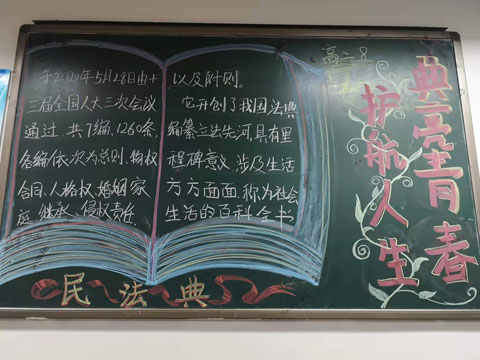 于2020年5月28日由十
三届全国人大三次会议
通过、共7编、1260条,
各编依次为总则、物权
合同、人格权、婚姻家
庭、继承、侵权责任、
以及附则。
它开创了我国法典
编纂立法先河,具有里
程碑意义,涉及生活
方方面面,称为社会
生活的百科全书
高二8
典亮青春
护航人生
民法典